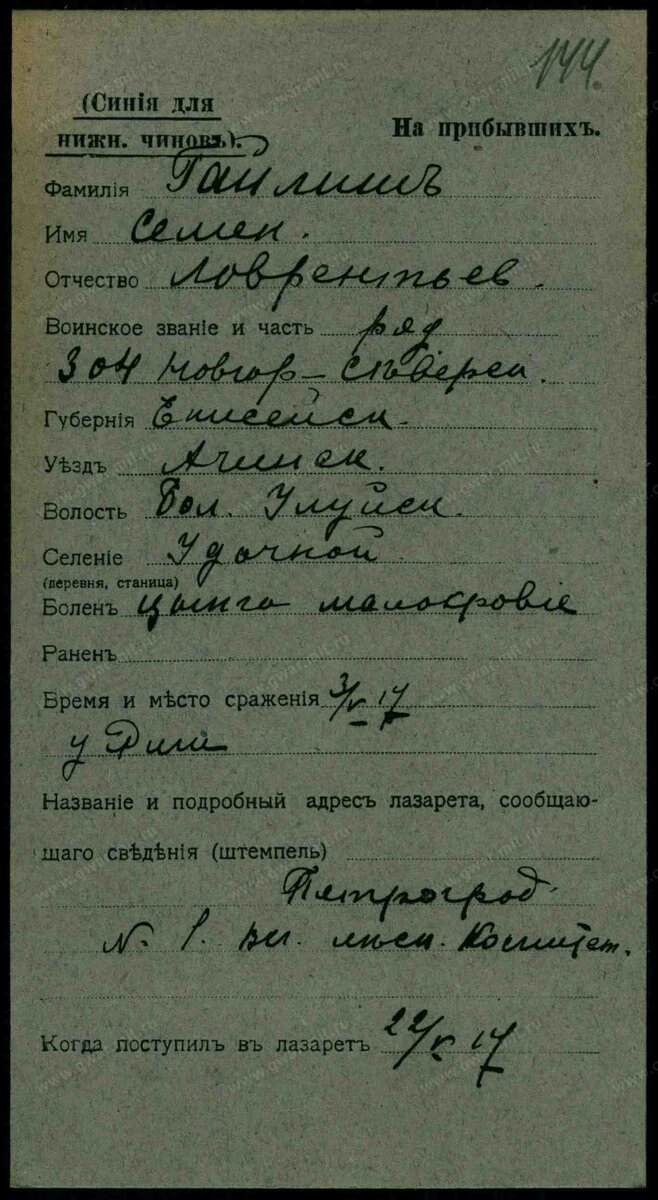 144.
(Синія для
нижн. чиновъ).
На прибывшихъ.
Фамилія Гайлишъ
Имя Семен.
Отчество Лаврентьев.
Воинское званіе и часть ряд
304 Новгор-Сѣверск.
Губернія Енисейск.
Уѣздъ Ачинск.
Волость Бол. Улуйск.
Селеніе Удачной
(деревня, станица)
Боленъ цынга малокровіе
Раненъ
Время и мѣсто сраженія 3/V 17
у Риги
Названіе и подробный адресъ лазарета, сообщаю-
щаго свѣдѣнія (штемпель)
Петроград.
N. 1.
Когда поступилъ въ лазаретъ 22/V 17